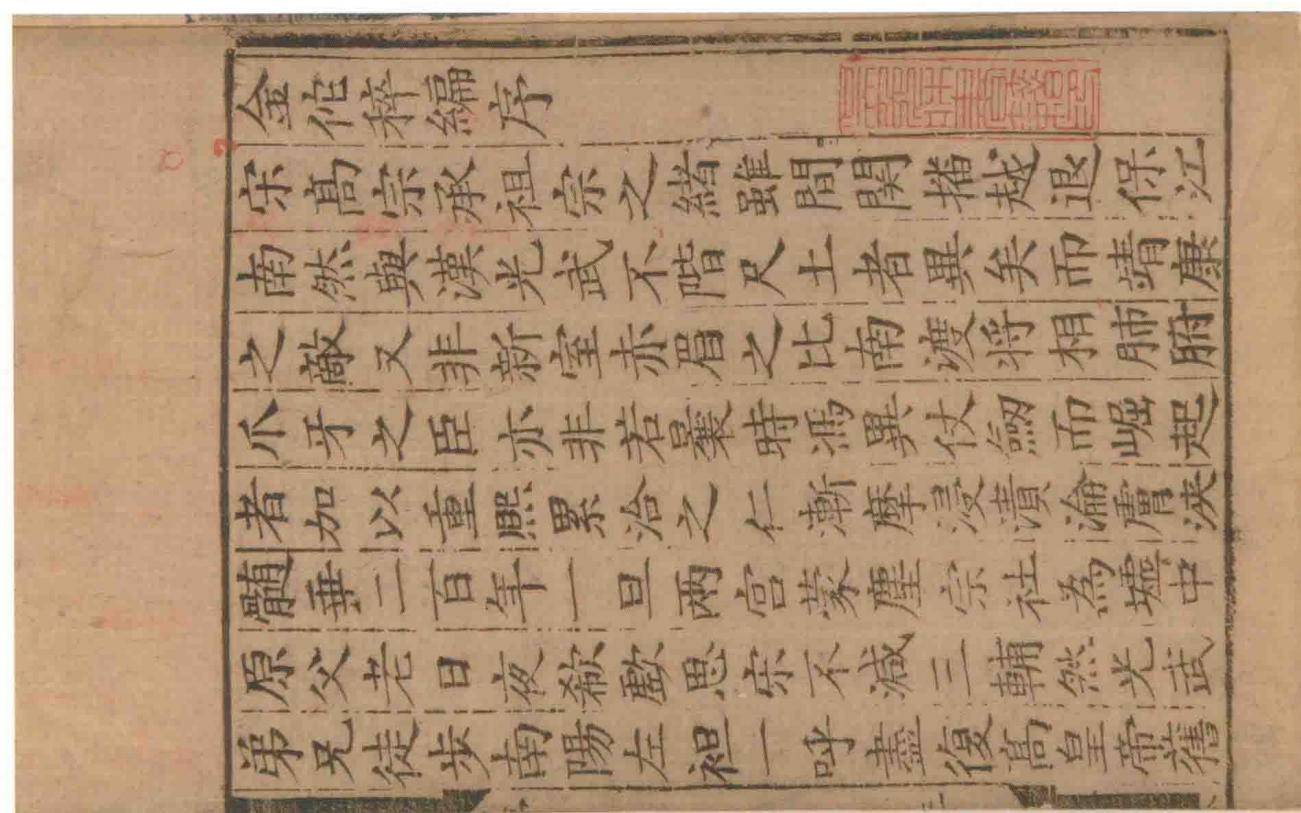 金佗稡編序
宋髙宗承祖宗之緒雖間関播越退保江
南然與漢光武不階尺土者異矣而靖康
之敵又非新室赤眉之比南渡将相肺腑
爪牙之臣亦非若曩時馮異仗劔而崛起
者加以重熈累洽之仁漸摩浸漬淪膚浹
髄垂二百年一旦兩宫蒙塵宗社為墟中
原父老日夜欷歔思宋不減三輔然光武
弟兄徒步南陽左袒一呼盡復髙皇帝舊